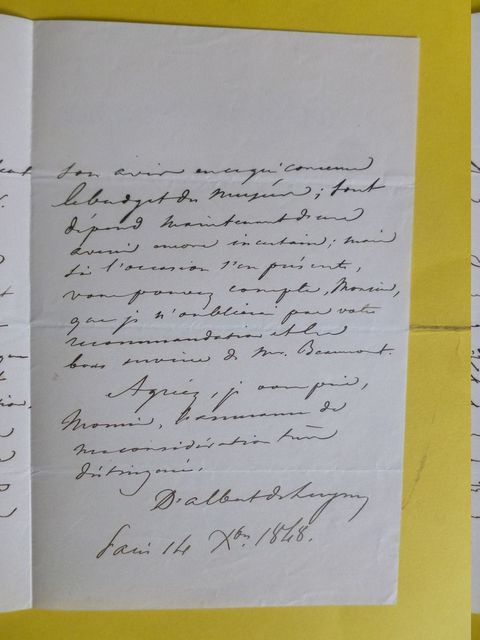 son avis en ce qui concerne
le budget du Muséum ; tout
dépend maintenant d'un
avenir encore incertain ; mais
si l'occasion s'en présente,
vous pouvez compter, Monsieur,
que je n'oublierai pas votre
recommandation et les
bons services de Mr. Beaumont.
Agréez, je vous prie,
Monsieur, l'assurance de
ma considération très
distinguée.
D'albert de Luynes
Paris 14 Xbre 1848.